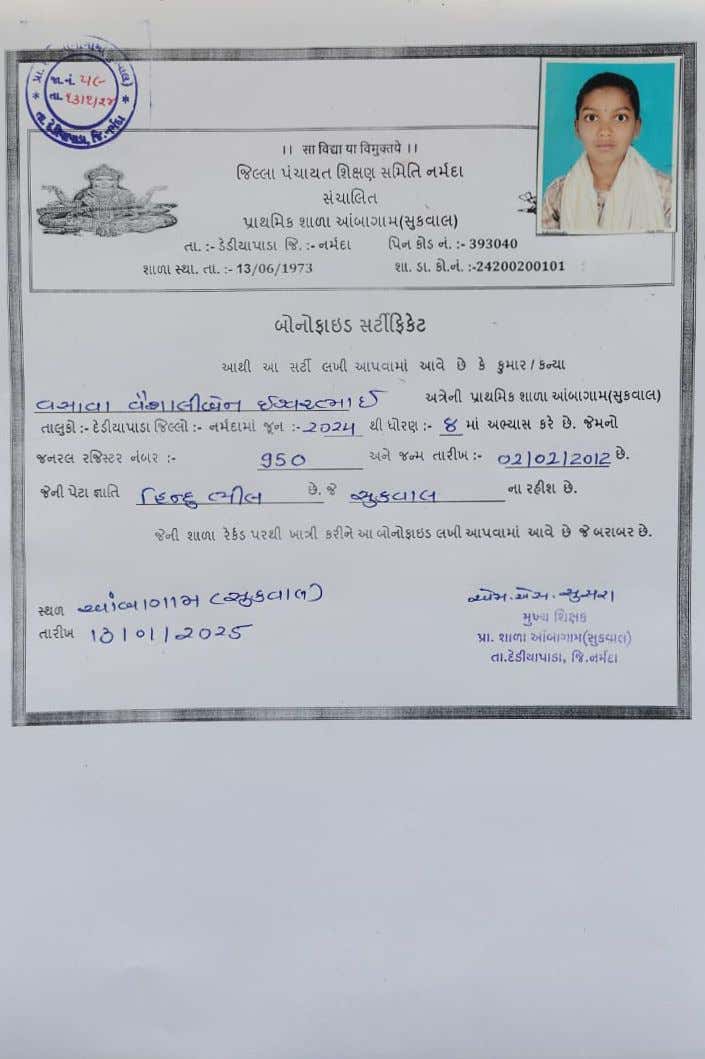 જા.નં. ૫૯
તા. ૧૩/૧/૨૫
તા. દેડીયાપાડા, જિ. નર્મદા
।। सा विद्या या विमुक्तये ।।
જિલ્લા પંચાયત શિક્ષણ સમિતિ નર્મદા
સંચાલિત
પ્રાથમિક શાળા આંબાગામ(સુકવાલ)
તા. :- ડેડીયાપાડા જિ. :- નર્મદા પિન કોડ નં. :- 393040
શાળા સ્થા. તા. :- 13/06/1973 શા. ડા. કો.નં. :-24200200101
બોનોફાઇડ સર્ટીફિકેટ
આથી આ સર્ટી લખી આપવામાં આવે છે કે કુમાર / કન્યા
વસાવા વૈશાલીબેન ઈશ્વરભાઈ અત્રેની પ્રાથમિક શાળા આંબાગામ(સુકવાલ)
તાલુકો :- દેડીયાપાડા જિલ્લો :- નર્મદામાં જૂન :- 2024 થી ધોરણ :- 8 માં અભ્યાસ કરે છે. જેમનો
જનરલ રજિસ્ટર નંબર :- 950 અને જન્મ તારીખ :- 02/02/2012 છે.
જેની પેટા જ્ઞાતિ હિન્દુ ભીલ છે. જે સુકવાલ ના રહીશ છે.
જેની શાળા રેકર્ડ પરથી ખાત્રી કરીને આ બોનોફાઇડ લખી આપવામાં આવે છે જે બરાબર છે.
સ્થળ આંબાગામ (સુકવાલ)
તારીખ 13/01/2025
એમ.એસ.
મુખ્ય શિક્ષક
પ્રા. શાળા આંબાગામ(સુકવાલ)
તા.દેડીયાપાડા, જિ.નર્મદા